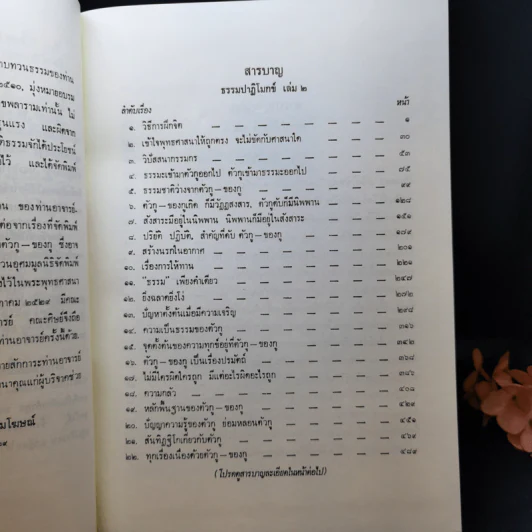 าบทวนธรรมของท่าน
๒๕๑๐, มุ่งหมายอบรม
ขพลารามเท่านั้น ไม่
รุนแรง และผิดจาก
ธรรมจักได้ประโยชน์
ไว้ และได้จัดพิมพ์
ณ ของท่านอาจารย์-
ต่อจากเรื่องที่จัดพิมพ์
ตัวกู—ของกู ซึ่งอาจ
วนอุศมมูลนิธิจัดพิมพ์
งไว้ในพระพุทธศาสนา
กาคม ๒๕๒๙ มีคณะ
ารย์ คณะศิษย์จึงถือ
ท่านอาจารย์ครั้งนี้ด้วย
ายสักการะท่านอาจารย์
นาคุณแก่ผู้บริจาคช่วย
มโฆษณ์
สารบาญ
ธรรมปาฏิโมกข์ เล่ม ๒
ลำดับเรื่อง หน้า
๑. วิธีการฝึกจิต — — — — — — — ๑
๒. เข้าใจพุทธศาสนาให้ถูกตรง จะไม่ขัดกับศาสนาใด — — — ๓๐
๓. วิปัสสนากรรมกร — — — — — — — ๕๓
๔. ธรรมะเข้ามาตัวกูออกไป ตัวกูเข้ามาธรรมะออกไป — — — ๗๕
๕. ธรรมชาติว่างจากตัวกู—ของกู — — — — — — ๙๙
๖. ตัวกู—ของกูเกิด ก็มีวัฏฏสงสาร, ตัวกูดับก็มีนิพพาน — — — ๑๒๘
๗. สังสาระมีอยู่ในนิพพาน นิพพานก็มีอยู่ในสังสาระ — — — ๑๕๑
๘. ปริยัติ ปฏิบัติ, สำคัญที่ดับ ตัวกู—ของกู — — — — ๑๗๙
๙. สร้างนรกในอากาศ — — — — — — — ๒๐๑
๑๐. เรื่องการให้ทาน — — — — — — — ๒๒๑
๑๑. "ธรรม" เพียงคำเดียว — — — — — — — ๒๔๗
๑๒. ยิ่งฉลาดยิ่งโง่ — — — — — — — ๒๗๒
๑๓. ปัญหาคั่งค้นเมื่อมีความเจริญ — — — — — — ๒๙๔
๑๔. ความเป็นธรรมของตัวกู — — — — — — — ๓๑๖
๑๕. จุดตั้งต้นของความทุกข์อยู่ที่ตัวกู—ของกู — — — — ๓๔๒
๑๖. ตัวกู—ของกู เป็นเรื่องปรมัตถ์ — — — — — — ๓๖๘
๑๗. ไม่มีใครผิดใครถูก มีแต่อะไรผิดอะไรถูก — — — — ๓๘๔
๑๘. ความกลัว — — — — — — — — ๔๐๘
๑๙. หลักพื้นฐานของตัวกู—ของกู — — — — — — ๔๒๙
๒๐. ปัญญาความรู้ของตัวกู ย่อมหลอนตัวกู — — — — ๔๕๑
๒๑. สันทิฏฐิโกเกี่ยวกับตัวกู — — — — — — — ๔๖๙
๒๒. ทุกเรื่องเนื่องด้วยตัวกู—ของกู — — — — — — ๔๘๙
(โปรดดูสารบาญละเอียดในหน้าต่อไป)